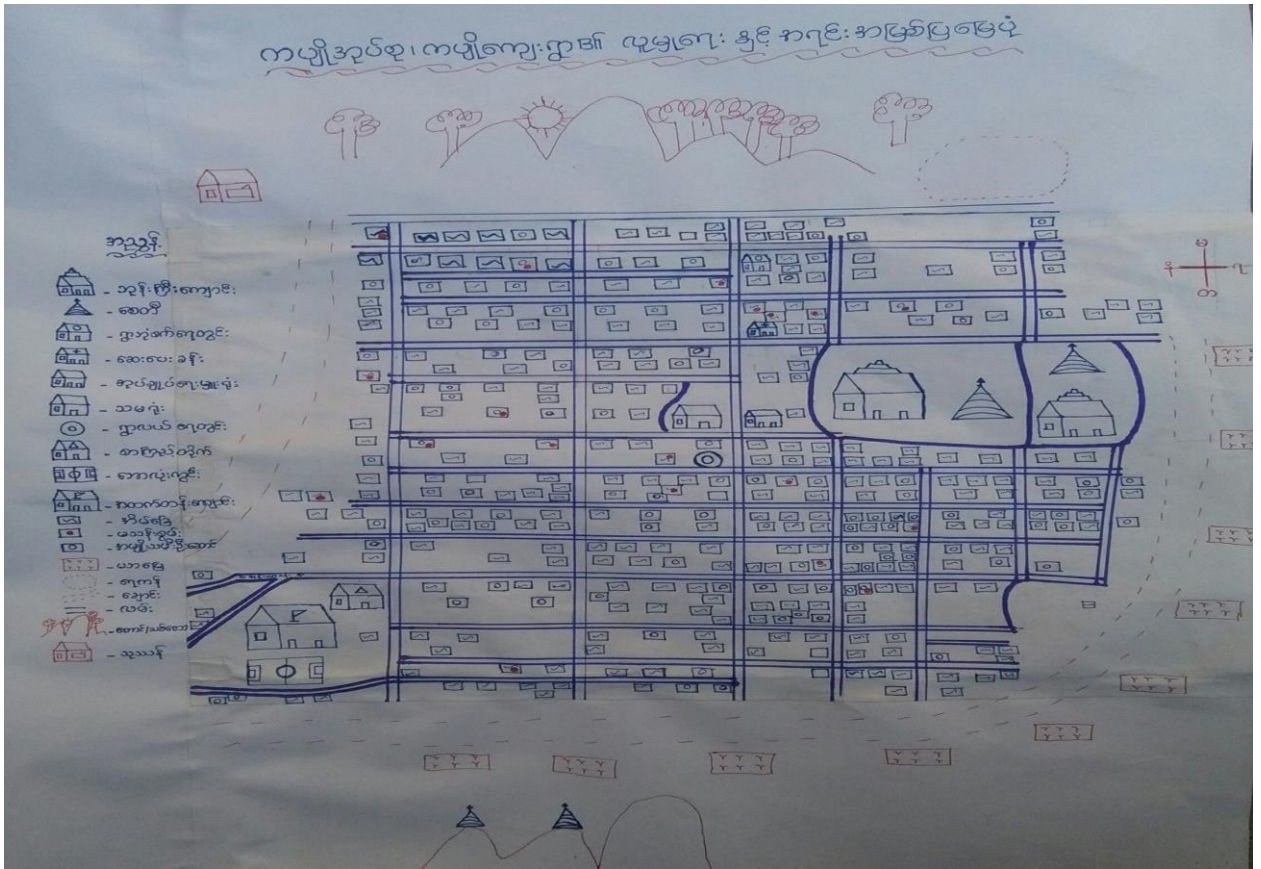 ကပျိုအုပ်စု၊ ကပျိုကျေးရွာ၏ လူမှုရေး နှင့် အရင်းအမြစ်ပြမြေပုံ
အညွှန်း
- ဘုန်းကြီးကျောင်း
- စေတီ
- ဆေးပေးခန်း
- အုပ်ချုပ်ရေးမှူးရုံး
- သမရုံး
- ရွာလယ်ရေတွင်း
- စာကြည့်တိုက်
- ဘောလုံးကွင်း
- အထက်တန်းကျောင်း
- အိမ်ခြေ
- မသန်စွမ်း
- အမျိုးသမီးဦးဆောင်
- ယာမြေ
- ရေကန်
- ချောင်း
- လမ်း
- တောင်/သစ်တော
- သုသာန်